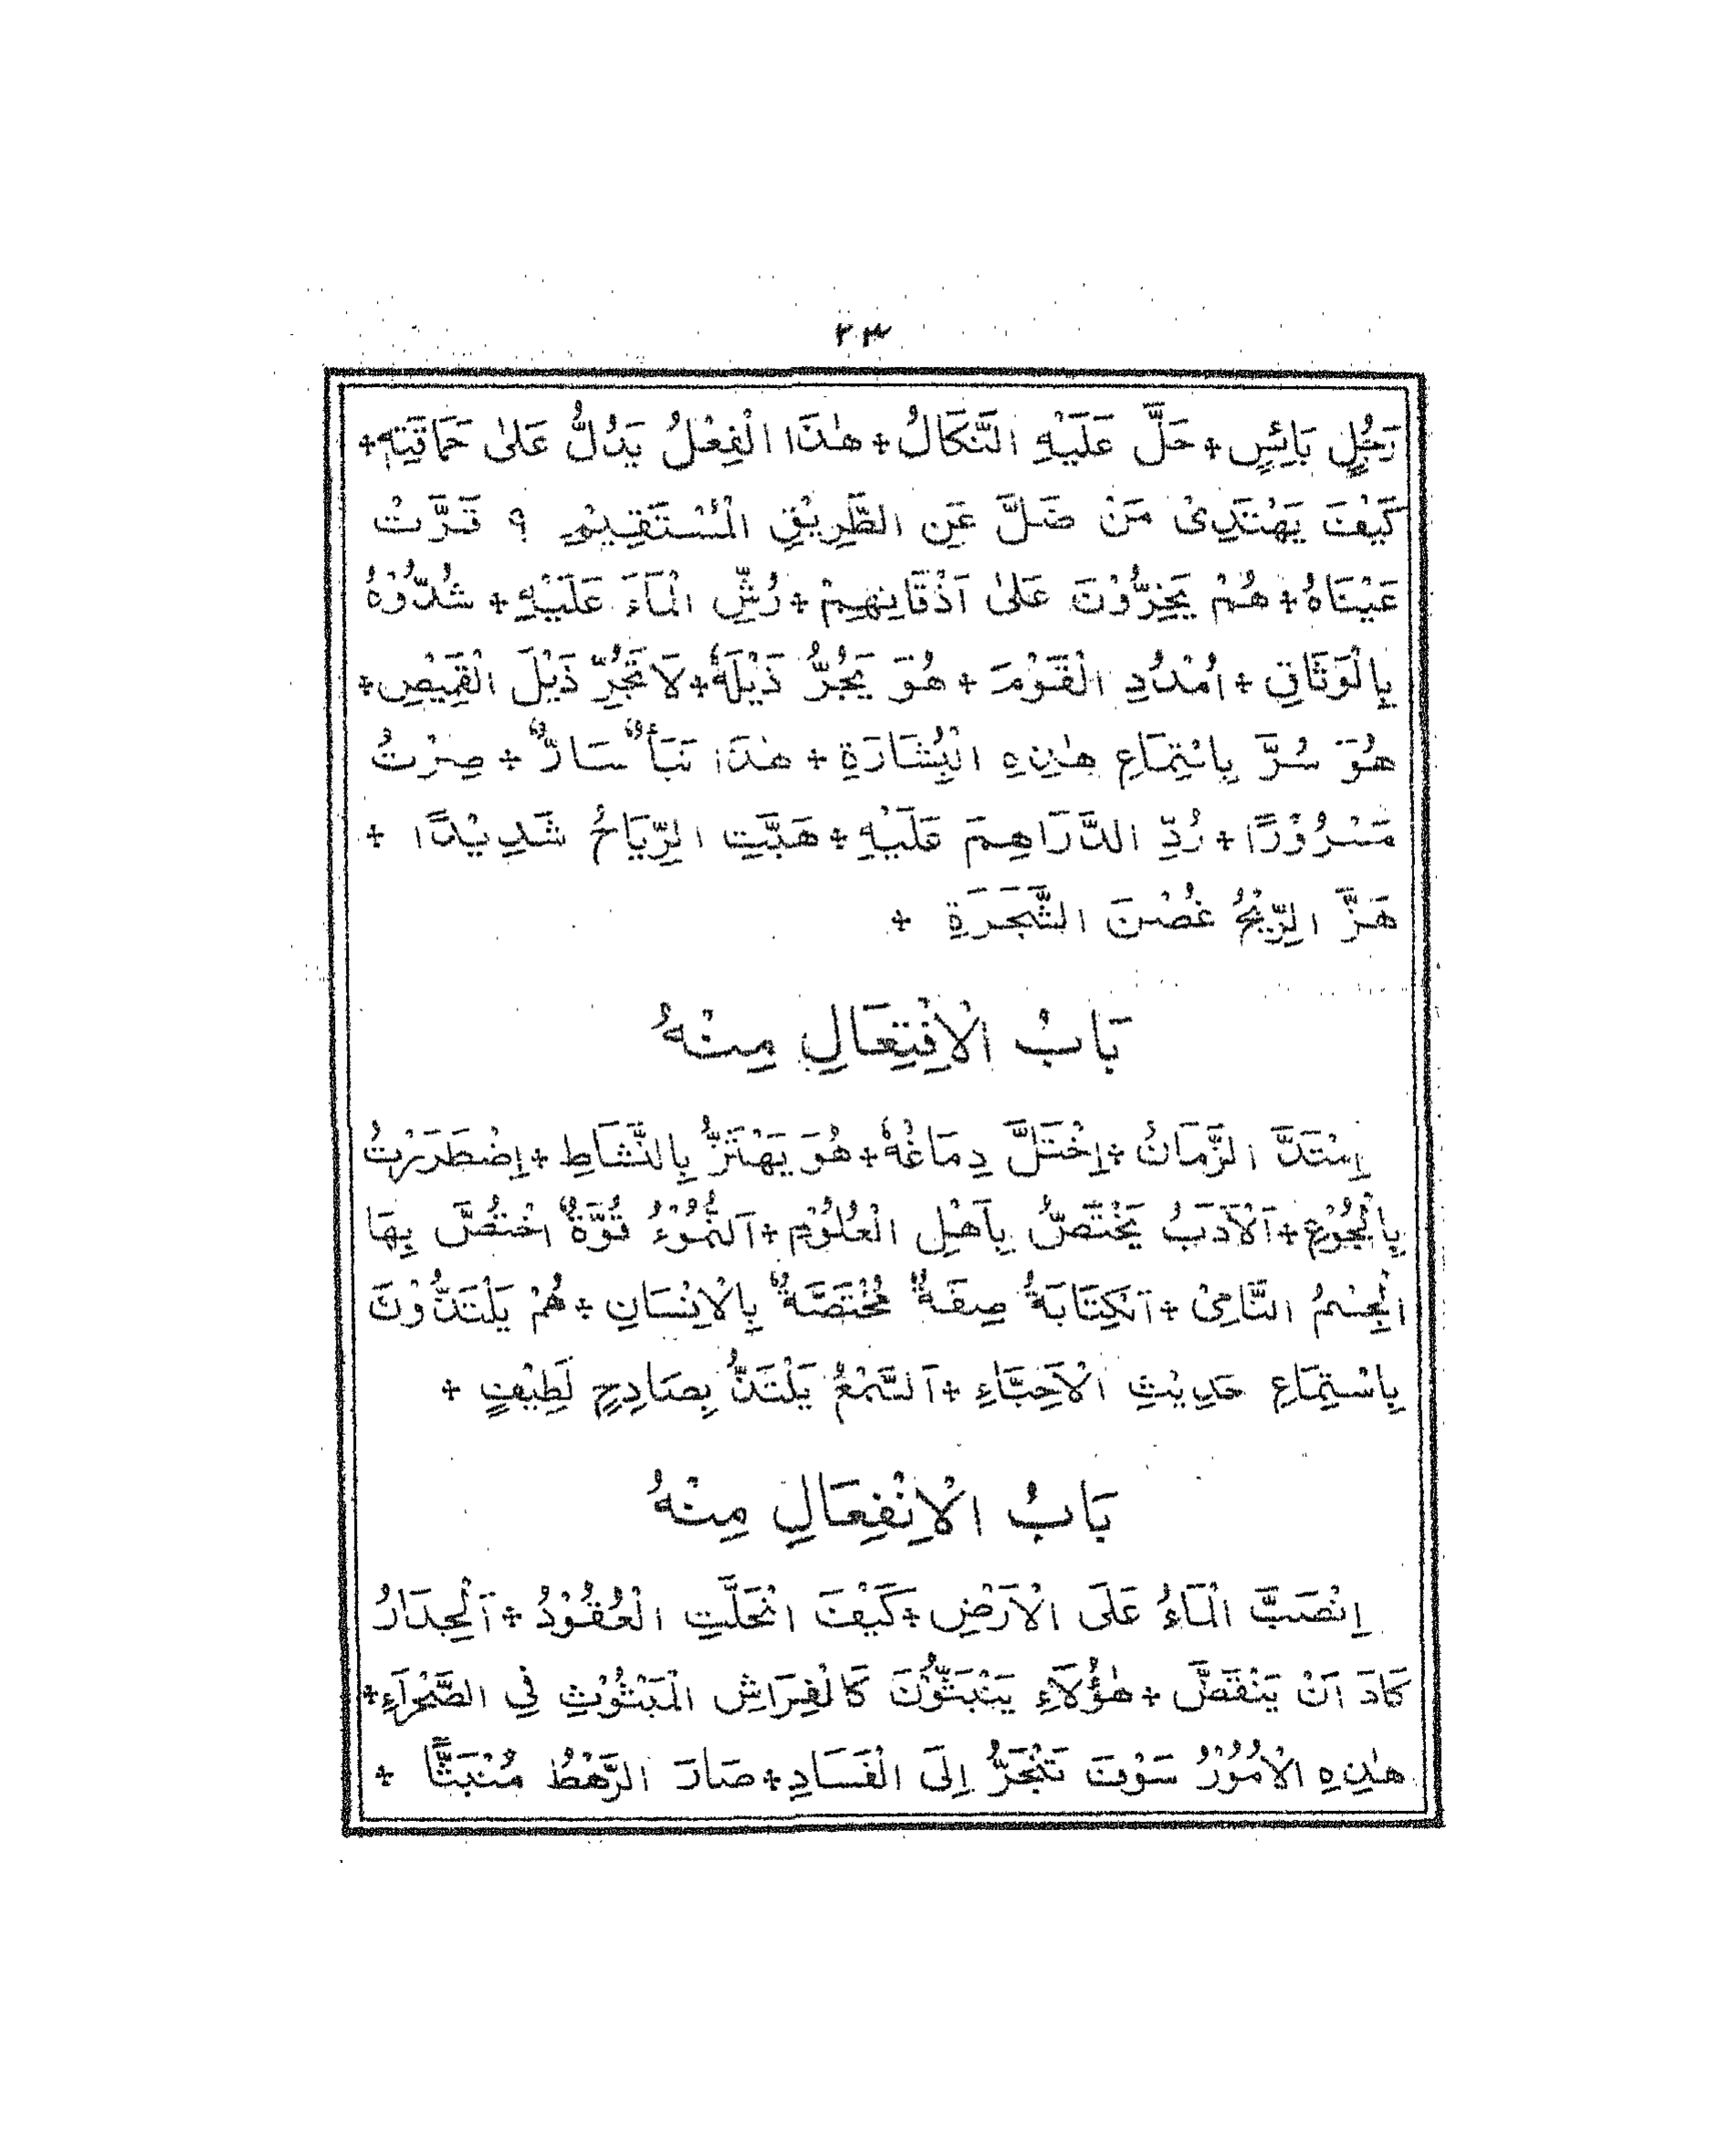 ٢٣
رَجُلٍ بَائِسٍ + حَلَّ عَلَيْهِ النَّكَالُ + هٰذَا الْفِعْلُ يَدُلُّ عَلىٰ حَمَاقَتِهٖ +
كَيْفَ يَهْتَدِىْ مَنْ ضَلَّ عَنِ الطَّرِيْقِ الْمُسْتَقِيْمِ ؟ قَرَّتْ
عَيْنَاهُ + هُمْ يَخِرُّوْنَ عَلىٰ اَذْقَانِهِمْ + رُشِّ الْمَاءَ عَلَيْهِ + شُدُّوْهُ
بِالْوَثَاقِ + اُمْدُدِ الْقَوْمَ + هُوَ يَجُرُّ ذَيْلَهٗ + لَا تَجُرِّ ذَيْلَ الْقَمِيْصِ +
هُوَ سُرَّ بِاسْتِمَاعِ هٰذِهِ الْبُشَارَةِ + هٰذَا نَبَأٌ سَارٌّ + صِرْتُ
مَسْرُوْرًا + رُدِّ الدَّرَاهِمَ عَلَيْهِ + هَبَّتِ الرِّيَاحُ شَدِيْدًا +
هَزَّ الرِّيْحُ غُصْنَ الشَّجَرَةِ +
بَابُ الْاِفْتِعَالِ مِنْهُ
اِمْتَدَّ الزَّمَانُ + اِخْتَلَّ دِمَاغُهٗ + هُوَ يَهْتَزُّ بِالنَّشَاطِ + اِضْطَرَرْتُ
بِالْجُوْعِ + اَلْاَدَبُ يَخْتَصُّ بِاَهْلِ الْعُلُوْمِ + اَلنُّمُوْءُ قُوَّةٌ اخْتُصَّ بِهَا
الْجِسْمُ النَّامِىْ + اَلْكِتَابَةُ صِفَةٌ مُخْتَصَّةٌ بِالْاِنْسَانِ + هُمْ يَلْتَذُّوْنَ
بِاسْتِمَاعِ حَدِيْثِ الْاَحِبَّاءِ + اَلسَّمْعُ يَلْتَذُّ بِصَادِحٍ لَطِيْفٍ +
بَابُ الْاِنْفِعَالِ مِنْهُ
اِنْصَبَّ الْمَاءُ عَلَى الْاَرْضِ + كَيْفَ انْحَلَّتِ الْعُقُوْدُ + اَلْجِدَارُ
كَادَ اَنْ يَنْقَضَّ + هٰؤُلَاءِ يَنْبَثُّوْنَ كَالْفِرَاشِ الْمَبْثُوْثِ فِي الصَّحْرَآءِ +
هٰذِهِ الْاُمُوْرُ سَوْفَ تَنْجَرُّ اِلَى الْفَسَادِ + صَارَ الرَّهْطُ مُنْبَثًّا +